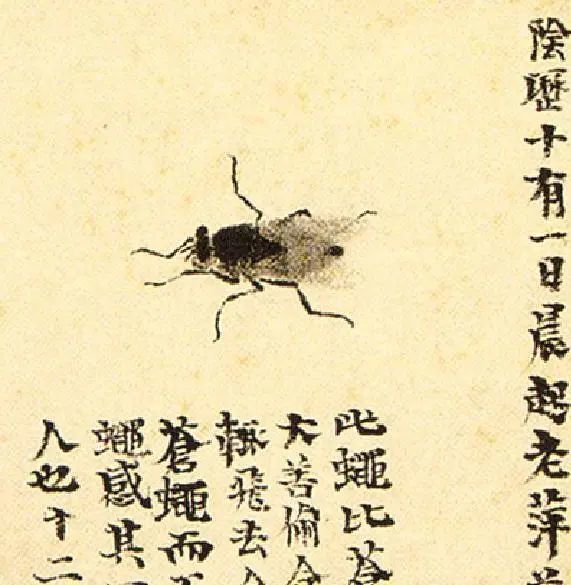 陰歷十有一日晨起老萍
此蠅比蒼
大善偷
輒飛去
蒼蠅而
蠅感其
人也十二